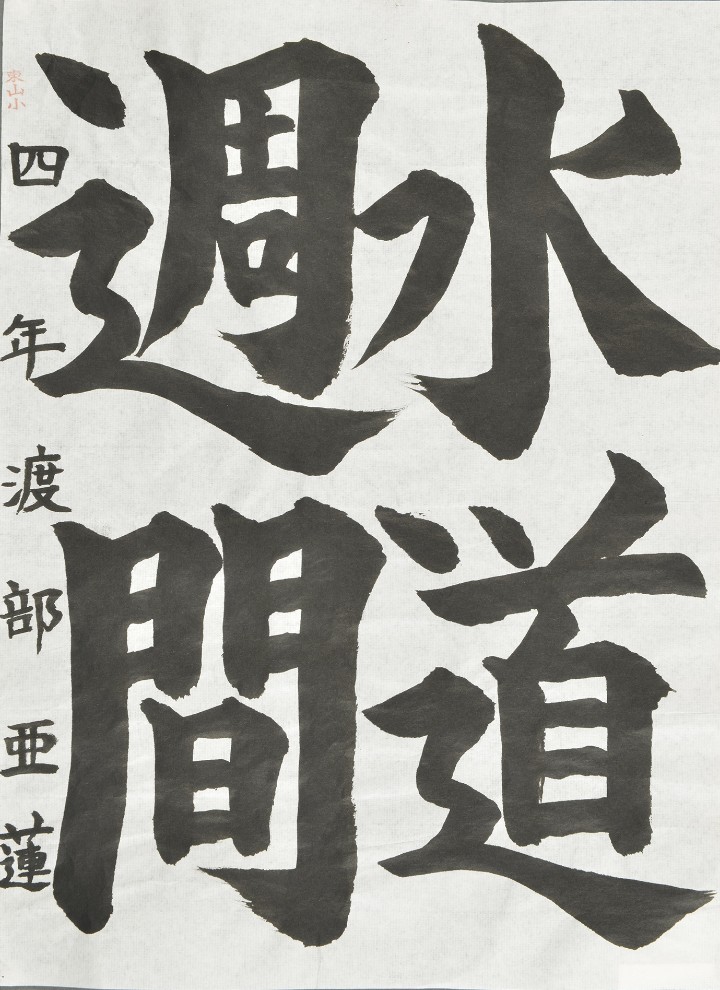 水道
週間
四年 渡部亜蓮
東山小